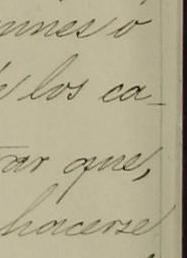 unes o
los ca-
rar que,
hacerse